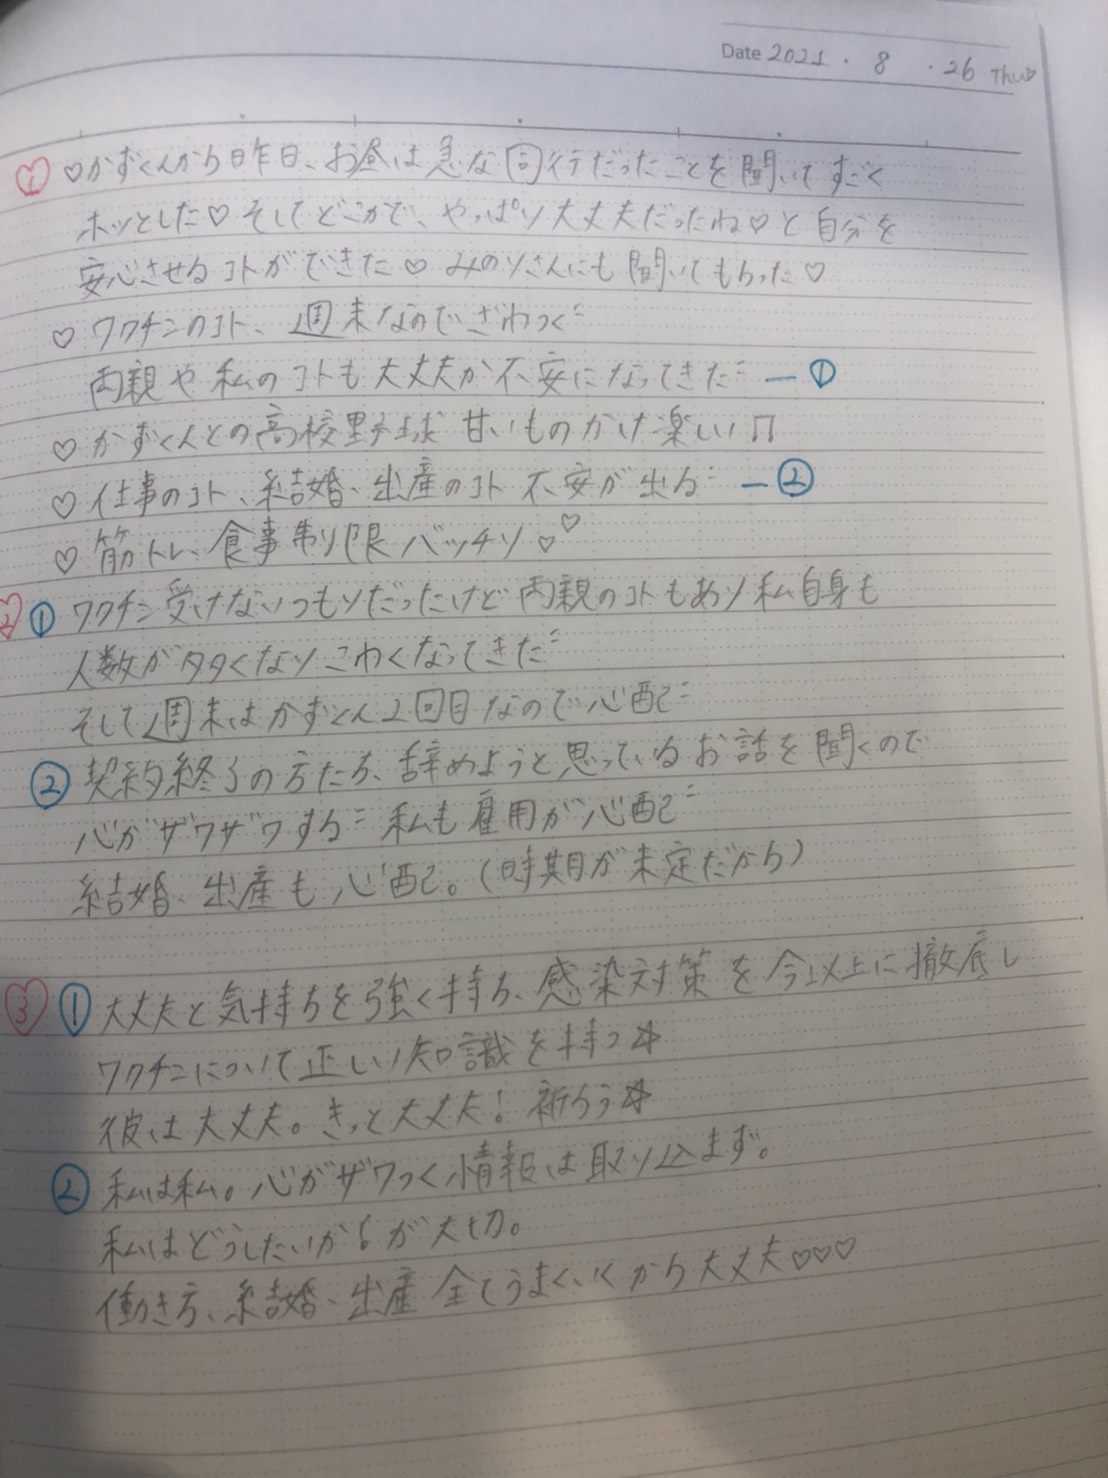 Date 2021 . 8 . 26 Thu♡
1 ♡かずくんから昨日、お昼は急な同行だったことを聞いてすごく
ホッとした♡そしてどこかで、やっぱり大丈夫だったね♡と自分を
安心させるコトができた♡みのりさんにも聞いてもらった♡
♡ワクチンのコト、週末なのでざわつく
両親や私のコトも大丈夫か不安になってきた ー①
♡かずくんとの高校野球 甘いものかけ楽しい♫
♡仕事のコト、結婚、出産のコト 不安が出る ー②
♡筋トレ、食事制限バッチリ♡♡
2 ① ワクチン受けないつもりだったけど両親のコトもあり私自身も
人数が多くなりこわくなってきた
そして週末はかずくん2回目なので心配
② 契約終了の方たち、辞めようと思っているお話を聞くので
心がザワザワする 私も雇用が心配
結婚、出産も心配。(時期が未定だから)
3 ① 大丈夫と気持ちを強く持ち、感染対策を今以上に徹底し
ワクチンについて正しい知識を持つ☆
彼は大丈夫。きっと大丈夫!祈ろう☆
② 私は私。心がザワつく情報は取り込まず。
私はどうしたいか!が大切。
働き方、結婚、出産 全てうまくいくから大丈夫♡♡♡